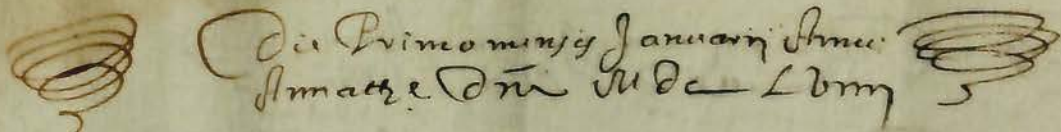 Die Primo mensis Januarij Anni
A nativitate Dñi M dc Lviiij